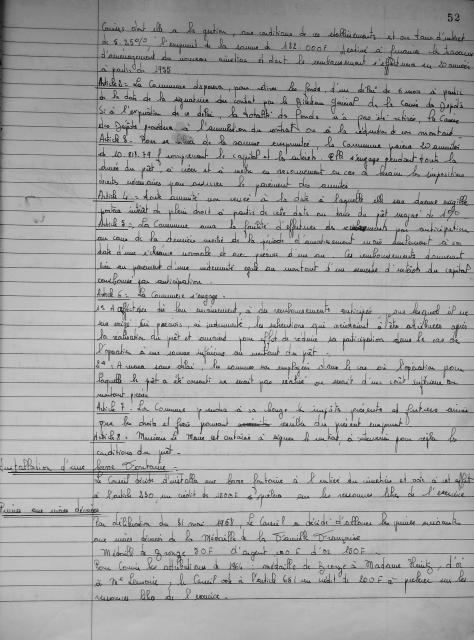 52
Consignations dont elle a la gestion, aux conditions de ces établissements et au taux d'intérêt
de 5.25% l'emprunt de la somme de 182 000F destiné à financer les travaux
d'aménagement du nouveau cimetière et dont le remboursement s'effectuera en 20 années
à partir de 1955
Article 2 = La Commune disposera, pour retirer les fonds, d'un délai de 6 mois à partir
de la date de la signature du contrat par le Directeur Général de la Caisse des Dépôts
Si à l'expiration de ce délai la totalité des fonds n'a pas été retirée, la Caisse
des Dépôts procédera à l'annulation du contrat ou à la réduction de son montant.
Article 3 - Pour se de la somme empruntée, la Commune paiera 20 annuités
de 10 comprenant le capital et les intérêts. Elle s'engage pendant toute la
durée du prêt à créer et à mettre en recouvrement en cas de besoin les impositions
directes nécessaires pour assurer le paiement des annuités
Article 4 = Toute annuité non versée à la date à laquelle elle sera devenue exigible
portera intérêt de plein droit à partir de cette date au taux du prêt majoré de 1%
Article 5 : La Commune aura la faculté d'effectuer des remboursements par anticipation
au cours de la dernière moitié de la période d'amortissement mais seulement à la
date d'une échéance normale et avec préavis d'un an. Ces remboursements donneront
lieu au paiement d'une indemnité égale au montant d'un semestre d'intérêts du capital
remboursé par anticipation.
Article 6 : La Commune s'engage :
1° A affecter dès leur encaissement, à des remboursements anticipés, pour lesquels il ne
sera exigé ni préavis, ni indemnité, les subventions qui viendraient à être attribuées après
la réalisation du prêt et auraient pour effet de réduire sa participation dans le coût de
l'opération à une somme inférieure au montant du prêt.
2° A verser sans délai les sommes non employées dans le cas où l'opération pour
laquelle le prêt a été consenti ne serait pas réalisée ou serait d'un coût inférieur au
montant prévu
Article 7 - La Commune prendra à sa charge les impôts présents et futurs ainsi
que les droits et frais pouvant résulter du présent emprunt
Article 8 - Monsieur le Maire est autorisé à signer le contrat, à intervenir pour régler les
conditions du prêt -
Installation d'une borne Fontaine -
Le Conseil décide d'installer une borne fontaine à l'entrée du cimetière et vote à cet effet
à l'article 230 un crédit de 1200F à prélever sur les ressources libres de l'exercice.
Primes aux mères décorées
Par délibération du 31 mai 1958, Le Conseil a décidé d'allouer les primes suivantes
aux mères décorées de la Médaille de la Famille Française
Médaille de bronze 50F d'argent 100F d'or 200F.
Pour Conseil les attributions de 1964 : médaille de bronze à Madame Heintz, d'or
à Me Lemoine ; le Conseil vote à l'article 651 un crédit de 200F à prélever sur les
ressources libres de l'exercice.